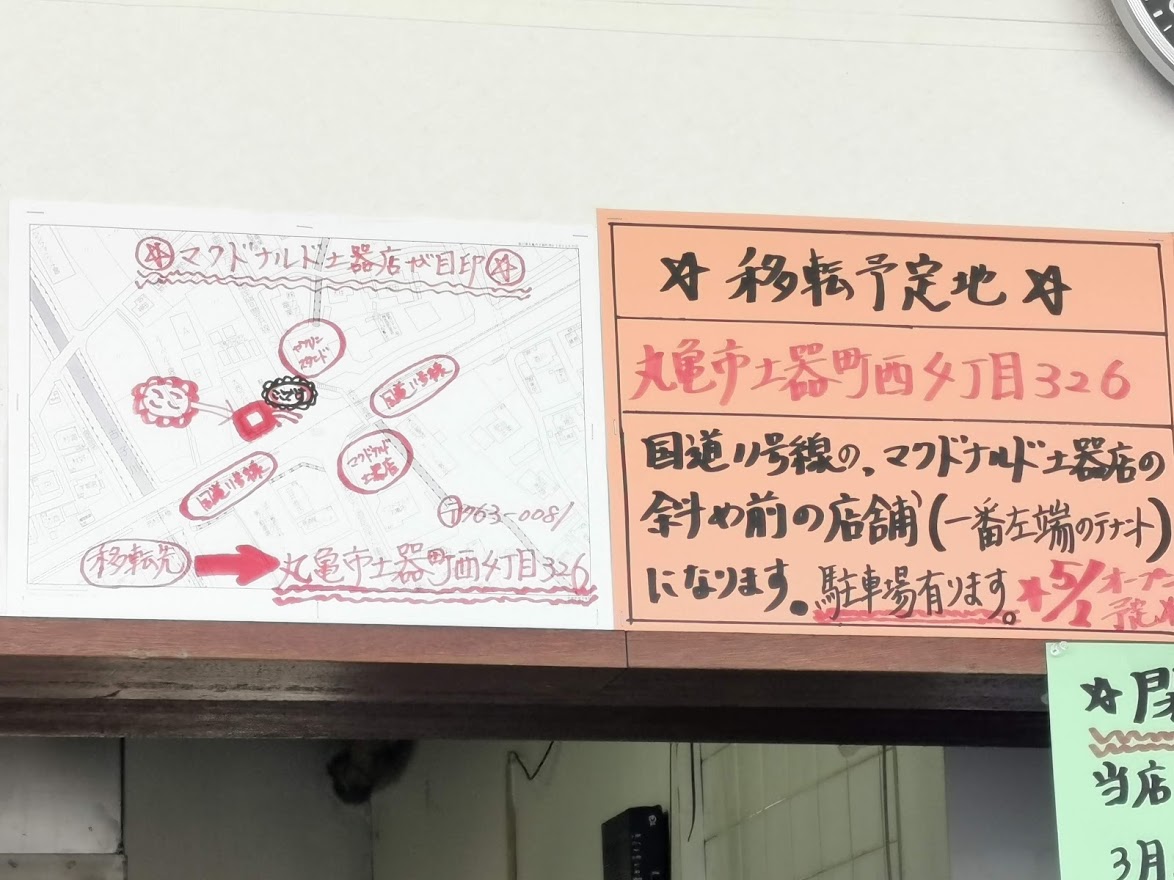 ☆マクドナルド土器店が目印☆
ガソリン
スタンド
国道11号線
ここ
マクドナルド
土器店
国道11号線
〒763-0081
移転先
丸亀市土器町西4丁目326
☆移転予定地☆
丸亀市土器町西4丁目326
国道11号線の、マクドナルド土器店の
斜め前の店舗(一番左端のテナント)
になります。駐車場有ります。
☆5/1オープン
予定
☆閉
当店
3月